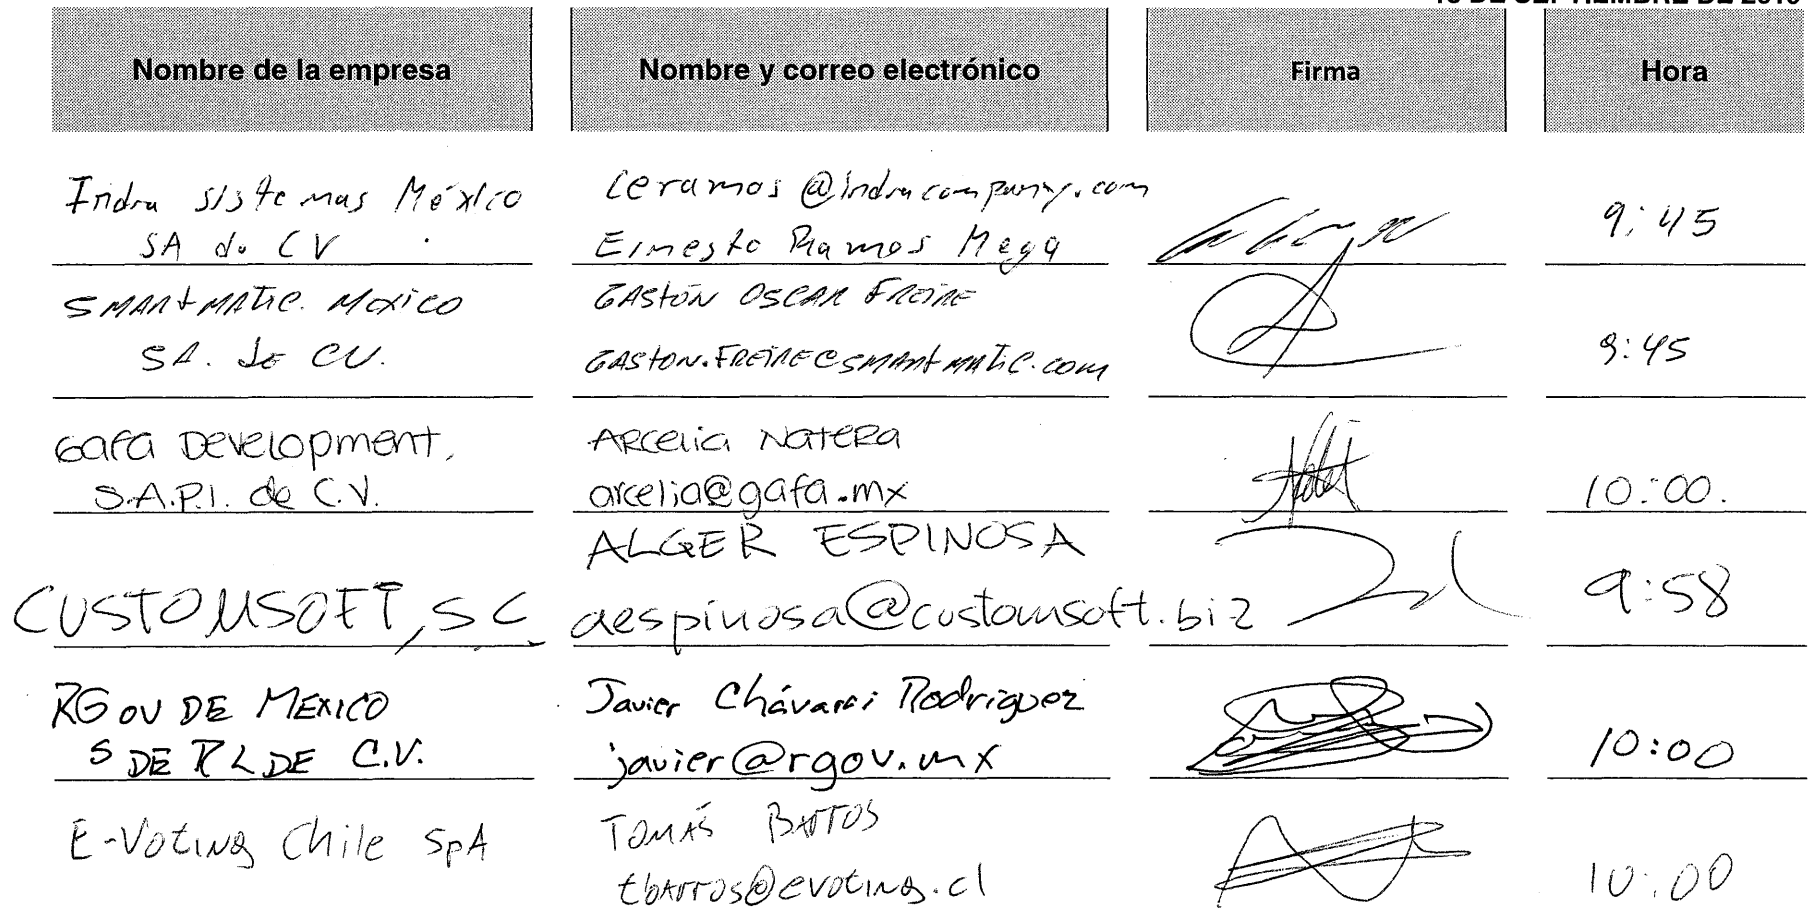 DE SEPTIEMBRE DE
Nombre de la empresa Nombre y correo electrónico Firma Hora
Indra sistemas México
SA de CV
ceramos@indracompany.com
Ernesto Ramos Mega
9:45
SMARTMATIC. MEXICO
SA. de CV.
GASTÓN OSCAR FREIRE
GASTON.FREIRE@SMARTMATIC.COM
9:45
Gafa Development,
S.A.P.I. de C.V.
Arcelia Natera
arcelia@gafa.mx
10:00.
CUSTOMSOFT, S.C.
ALGER ESPINOSA
aespinosa@customsoft.biz
9:58
RGOV DE MEXICO
S DE RL DE C.V.
Javier Chávarri Rodriguez
javier@rgov.mx
10:00
E-Voting Chile SpA
TOMÁS BARROS
tbarros@evoting.cl
10:00